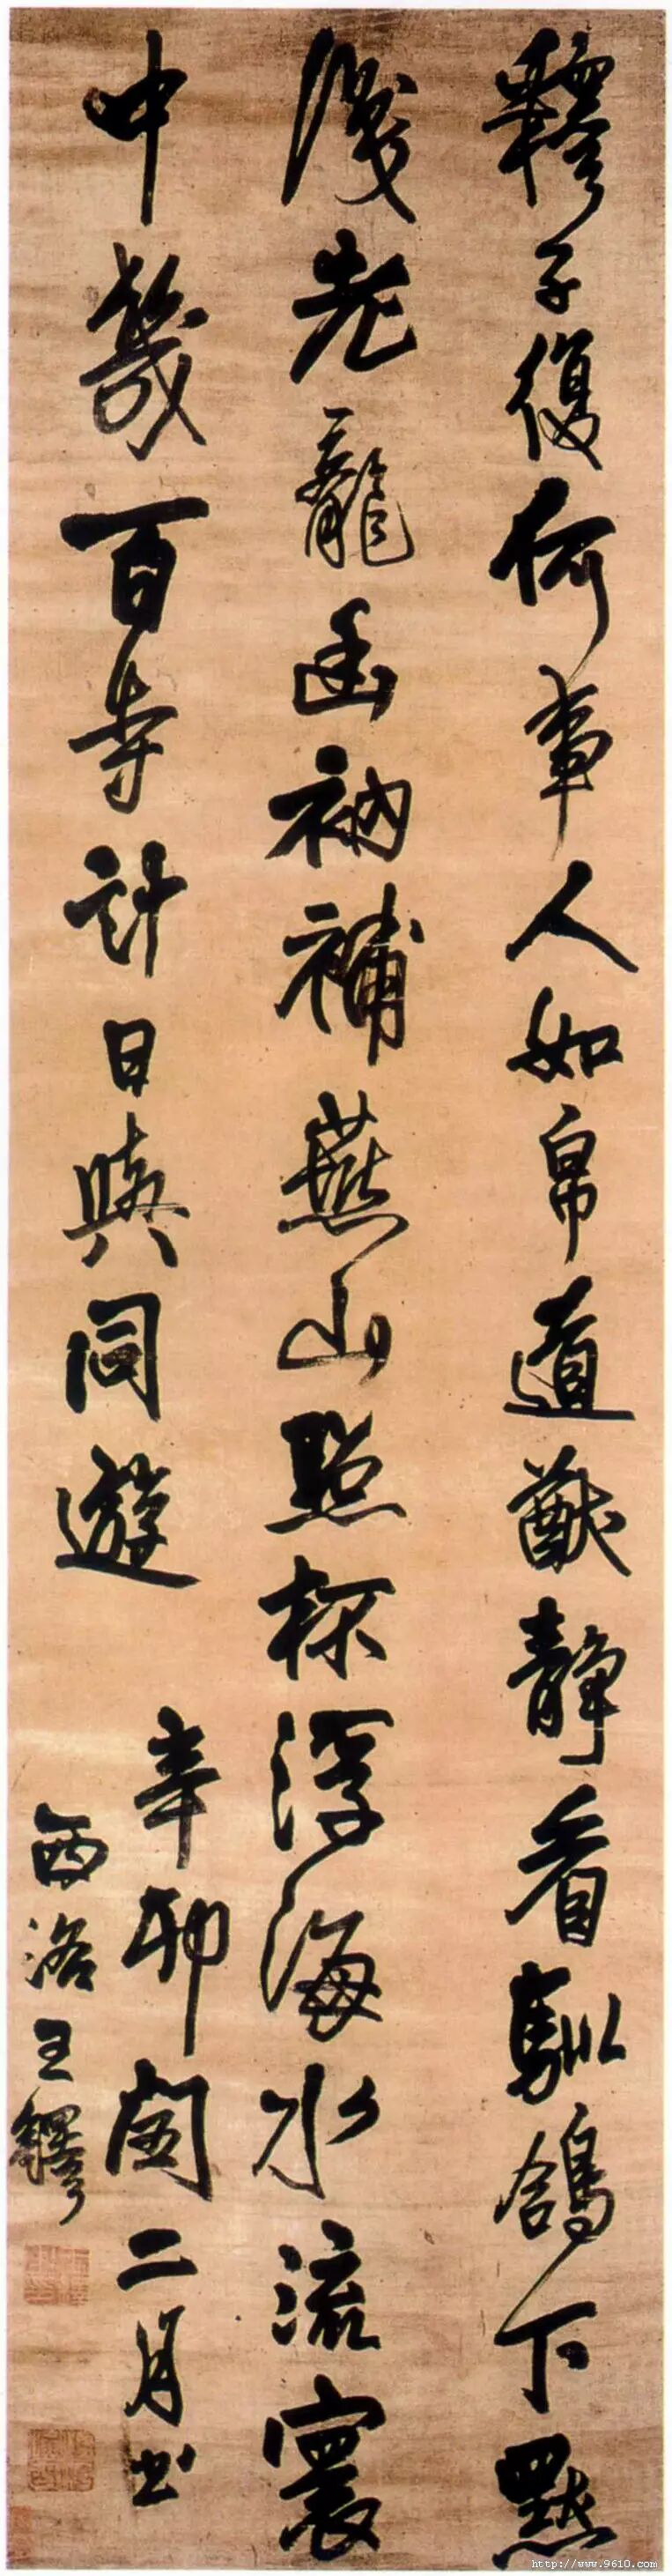 釋子復何事人如帛道猷靜看馴鴿下默
老龍幽衲補燕山照杯浮海水流寰
中幾百寺計日與同遊
辛卯閏二月書
西洛王鐸
http://www.9610.com